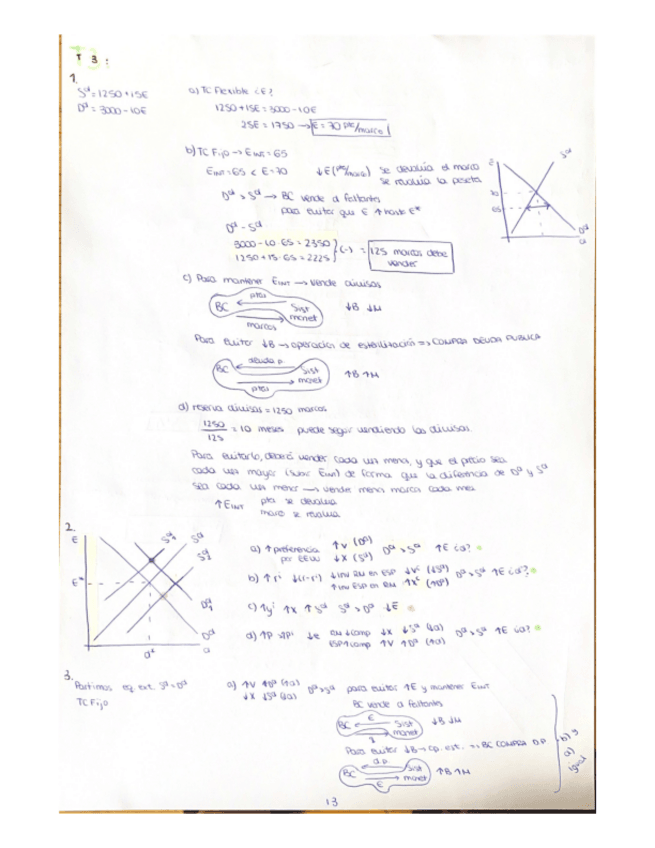 T 3:
1.
Sᵈ = 1250 + 15E
Dᵈ = 3000 - 10E
a) TC Flexible ¿E?
1250 + 15E = 3000 - 10E
25E = 1750 → E = 70 pta/marco
b) TC Fijo → E INT = 65
E INT = 65 < E = 70 ↓E (pta/marco) se devalúa el marco
se revalúa la peseta
Dᵈ > Sᵈ → BC vende d faltantes
para evitar que E ↑ hasta E*
Dᵈ - Sᵈ
3000 - 10·65 = 2350
1250 + 15·65 = 2225
} (-) = 125 marcos debe
vender
E
70
65
Sᵈ
Dᵈ
d
c) Para mantener E INT → vende divisas
ptas
BC
Sist
monet
marcos
↓B ↓M
Para evitar ↓B → operación de esterilización => COMPRA DEUDA PUBLICA
deuda p.
BC
Sist
monet
ptas
↑B ↑M
d) reserva divisas = 1250 marcos
1250
125
= 10 meses puede seguir vendiendo las divisas
Para evitarlo, deberá vender cada vez menos, y que el precio sea
cada vez mayor (subir E INT) de forma que la diferencia de Dᵈ y Sᵈ
sea cada vez menor → vender menos marcos cada mes
↑E INT pta se devalúa
marco se revalúa
2.
E
E*
Dᵈ
d*
d
a) ↑preferencia
por EEUU
↑V (Dᵈ)
↓X (Sᵈ)
Dᵈ > Sᵈ ↑E ¿d?
b) ↑r* ↓(r-r*) ↓inv RM en ESP
↑inv ESP en RM
Dᵈ > Sᵈ ↑E ¿d?
c) ↑y* ↑X ↑Sᵈ Sᵈ > Dᵈ ↓E
d) ↑P
↓e
↓comp ↓X
ESP ↑comp ↑V ↑Dᵈ (↑d)
Dᵈ > Sᵈ ↑E ¿d?
3.
Partimos eq. ext. Sᵈ = Dᵈ
TC Fijo
a) ↑V ↑Dᵈ (↑d)
↓X ↓Sᵈ (↓d)
Dᵈ > Sᵈ para evitar ↑E y mantener E INT
BC vende d faltantes
E
BC
Sist
monet
↓B ↓M
Para evitar ↓B → op. est. => BC COMPRA D.P
d.p.
BC
Sist
monet
E
↑B ↑M
b) y
d)
igual
13